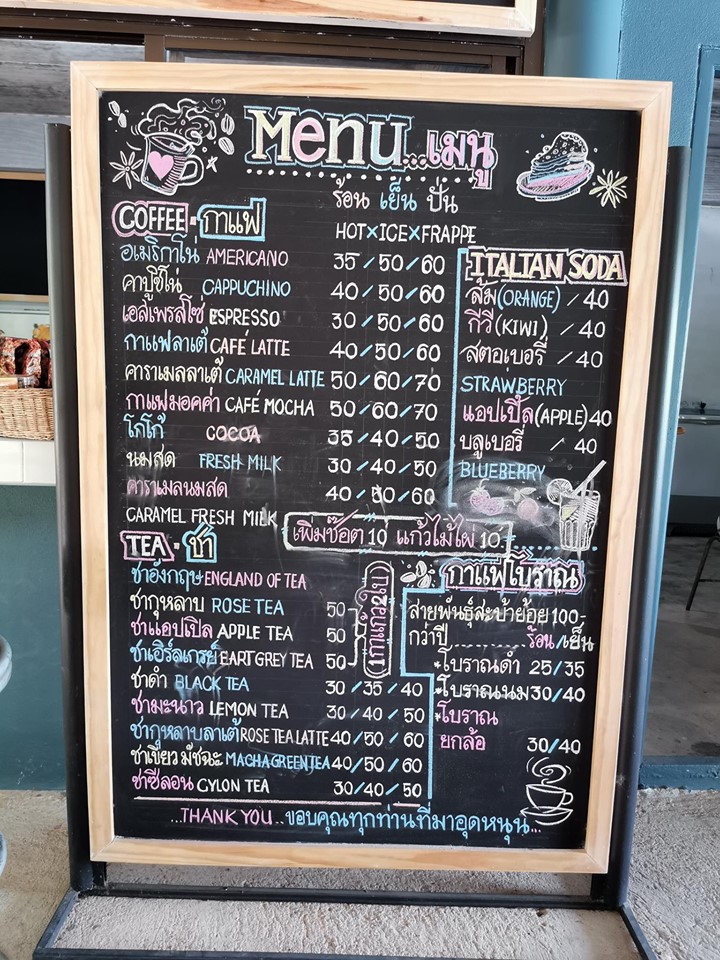 Menu...เมนู
ร้อน เย็น ปั่น
COFFEE-กาแฟ
HOT×ICE×FRAPPE
อเมริกาโน่ AMERICANO 35/50/60
คาปูชิโน่ CAPPUCHINO 40/50/60
เอสเพรสโซ่ ESPRESSO 30/50/60
กาแฟลาเต้ CAFÉ LATTE 40/50/60
คาราเมลลาเต้ CARAMEL LATTE 50/60/70
กาแฟมอคค่า CAFÉ MOCHA 50/60/70
โกโก้ COCOA 35/40/50
นมสด FRESH MILK 30/40/50
คาราเมลนมสด 40/50/60
CARAMEL FRESH MILK
ITALIAN SODA
ส้ม(ORANGE) / 40
กีวี(KIWI) / 40
สตอเบอรี่ / 40
STRAWBERRY
แอปเปิ้ล(APPLE)40
บลูเบอรี่ / 40
BLUEBERRY
เพิ่มช๊อต 10 แก้วไม้ไผ่ 10.-
TEA-ชา
ชาอังกฤษ ENGLAND OF TEA
ชากุหลาบ ROSE TEA 50
ชาแอปเปิล APPLE TEA 50
ชาเอิร์ลเกรย์ EART GREY TEA 50
1กาแก้ว2ใบ
ชาดำ BLACK TEA 30/35/40
ชามะนาว LEMON TEA 30/40/50
ชากุหลาบลาเต้ ROSE TEA LATTE 40/50/60
ชาเขียวมัชฉะ MACHA GREEN TEA 40/50/60
ชาซีลอน CYLON TEA 30/40/50
กาแฟโบราณ
สายพันธุ์สะบ้าย้อย 100
กว่าปี........ร้อน/เย็น
*โบราณดำ 25/35
*โบราณนม 30/40
*โบราณ
ยกล้อ 30/40
...THANK YOU..ขอบคุณทุกท่านที่มาอุดหนุน...